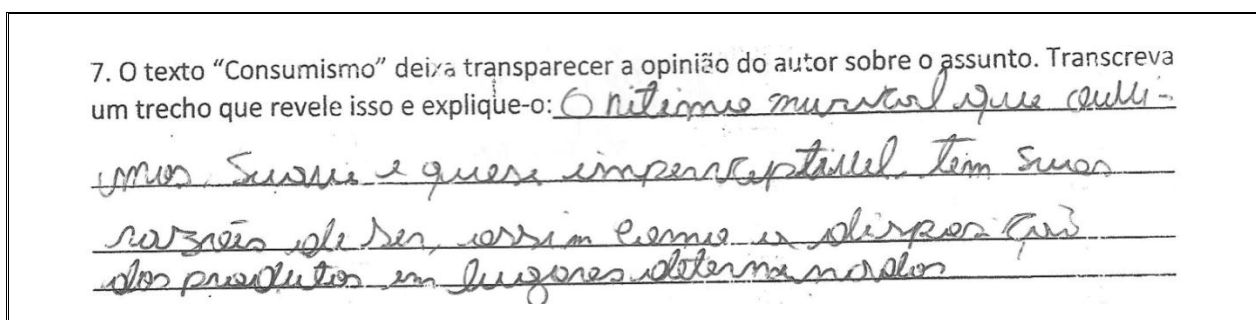 7. O texto “Consumismo” deixa transparecer a opinião do autor sobre o assunto. Transcreva
um trecho que revele isso e explique-o: O ritimo musical que ouvi-
mos, suave e quase imperceptível tem suas
razões de ser, assim como a disposição
dos produtos em lugares determinados